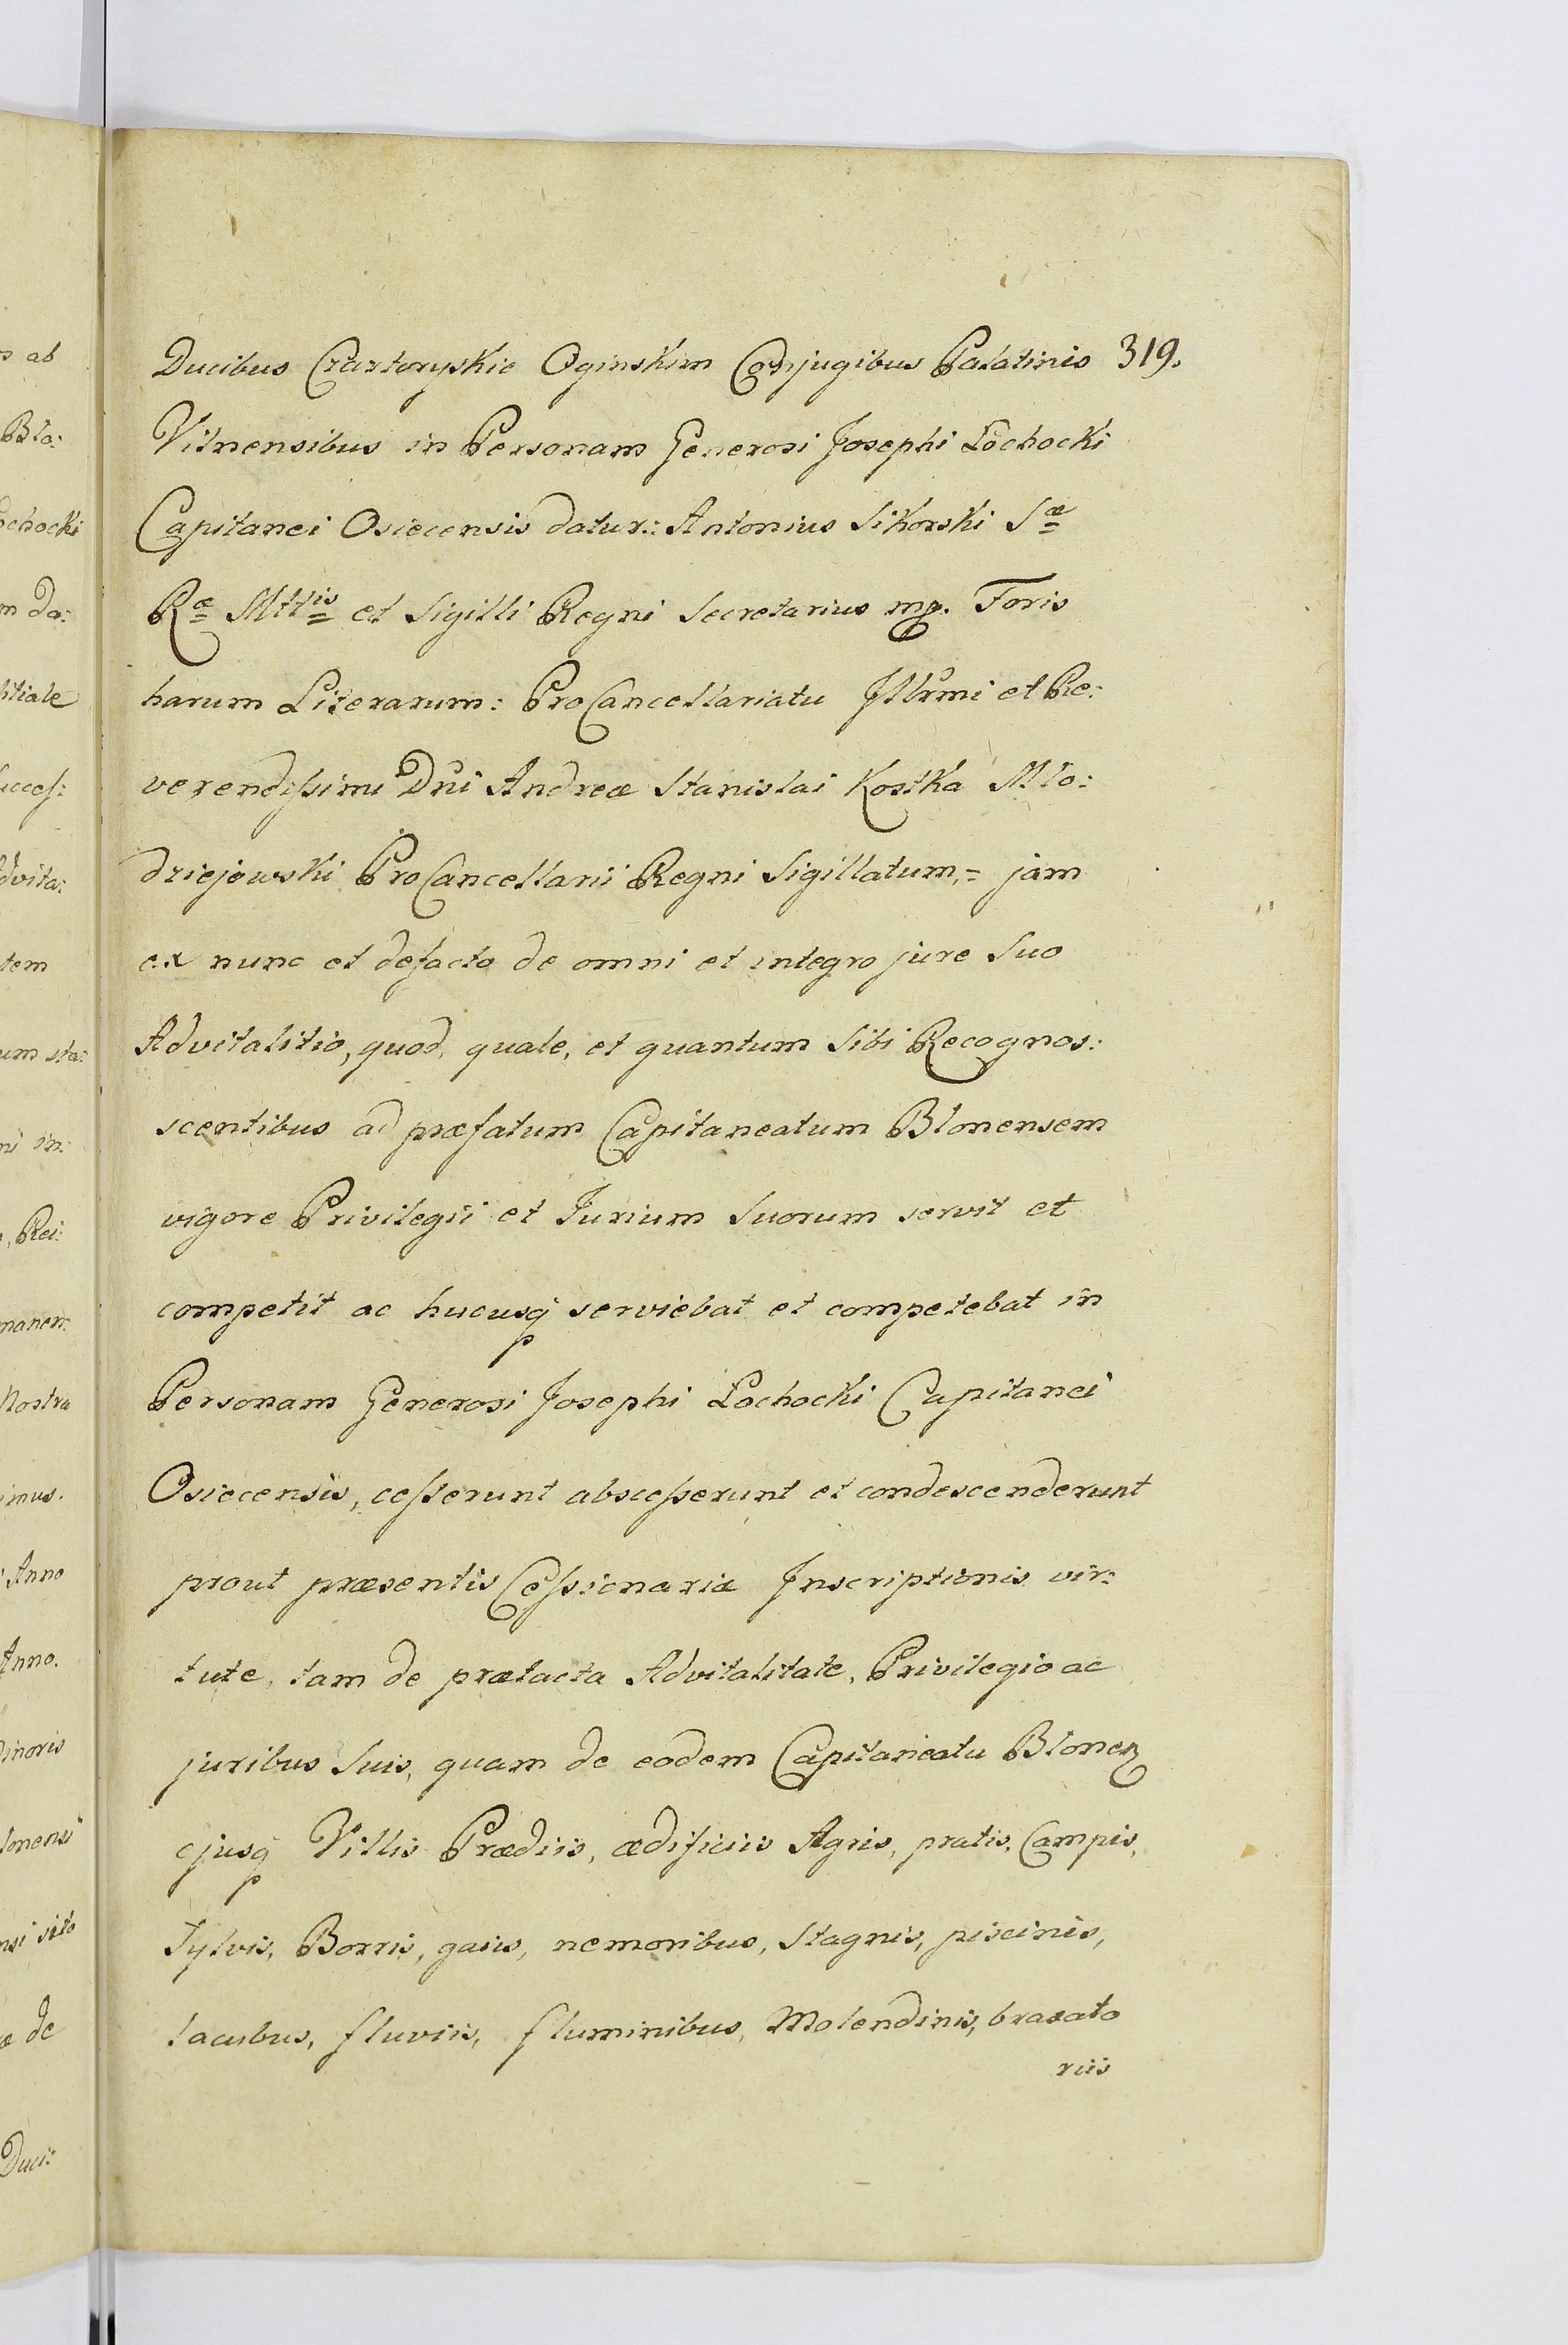 Ducibus Czartoryskie Oginskim Conjugibus Palatinis 319.
Vilnensibus in Personam Generosi Josephi Łochocki
Capitanei Osiecensis datur: Antonius Sikorski Sæ
Ræ Mttis et Sigilli Regni Secretarius mp. Foris
harum Literarum: ProCancellariatu Illrmi et Re:
verendissimi Dni Andreæ Stanislai Kostka Mło:
dziejowski ProCancellarii Regni Sigillatum,= jam
ex nunc et defacto de omni et integro jure Suo
Advitalitio, quod, quale, et quantum Sibi Recognos:
scentibus ad præfatum Capitaneatum Blonensem
vigore Privilegii et Jurium Suorum servit et
competit ac hucusq serviebat et competebat in
Personam Generosi Josephi Łochocki Capitanei
Osiecensis, cesserunt abscesserunt et condescenderunt
prout præsentis Cessionariæ Inscriptionis vir:
tute, tam de prætacta Advitalitate, Privilegio ac
juribus Suis, quam de eodem Capitaneatu Blonen
ejusq Villis Prædiis, ædificiis Agris, pratis, Campis,
Sylvis, Borris, gaiis, nemoribus, Stagnis, piscinis,
lacubus, fluviis, fluminibus, Molendinis, braxato
riis
s ab
Blo:
ochocki
m da:
litiale
uccess:
dvita:
tem
um sta:
ni in:
, Rei:
manen:
Nostra
imus.
Anno
Anno.
inoris
lonensi
nsi sito
æ de
Duci: